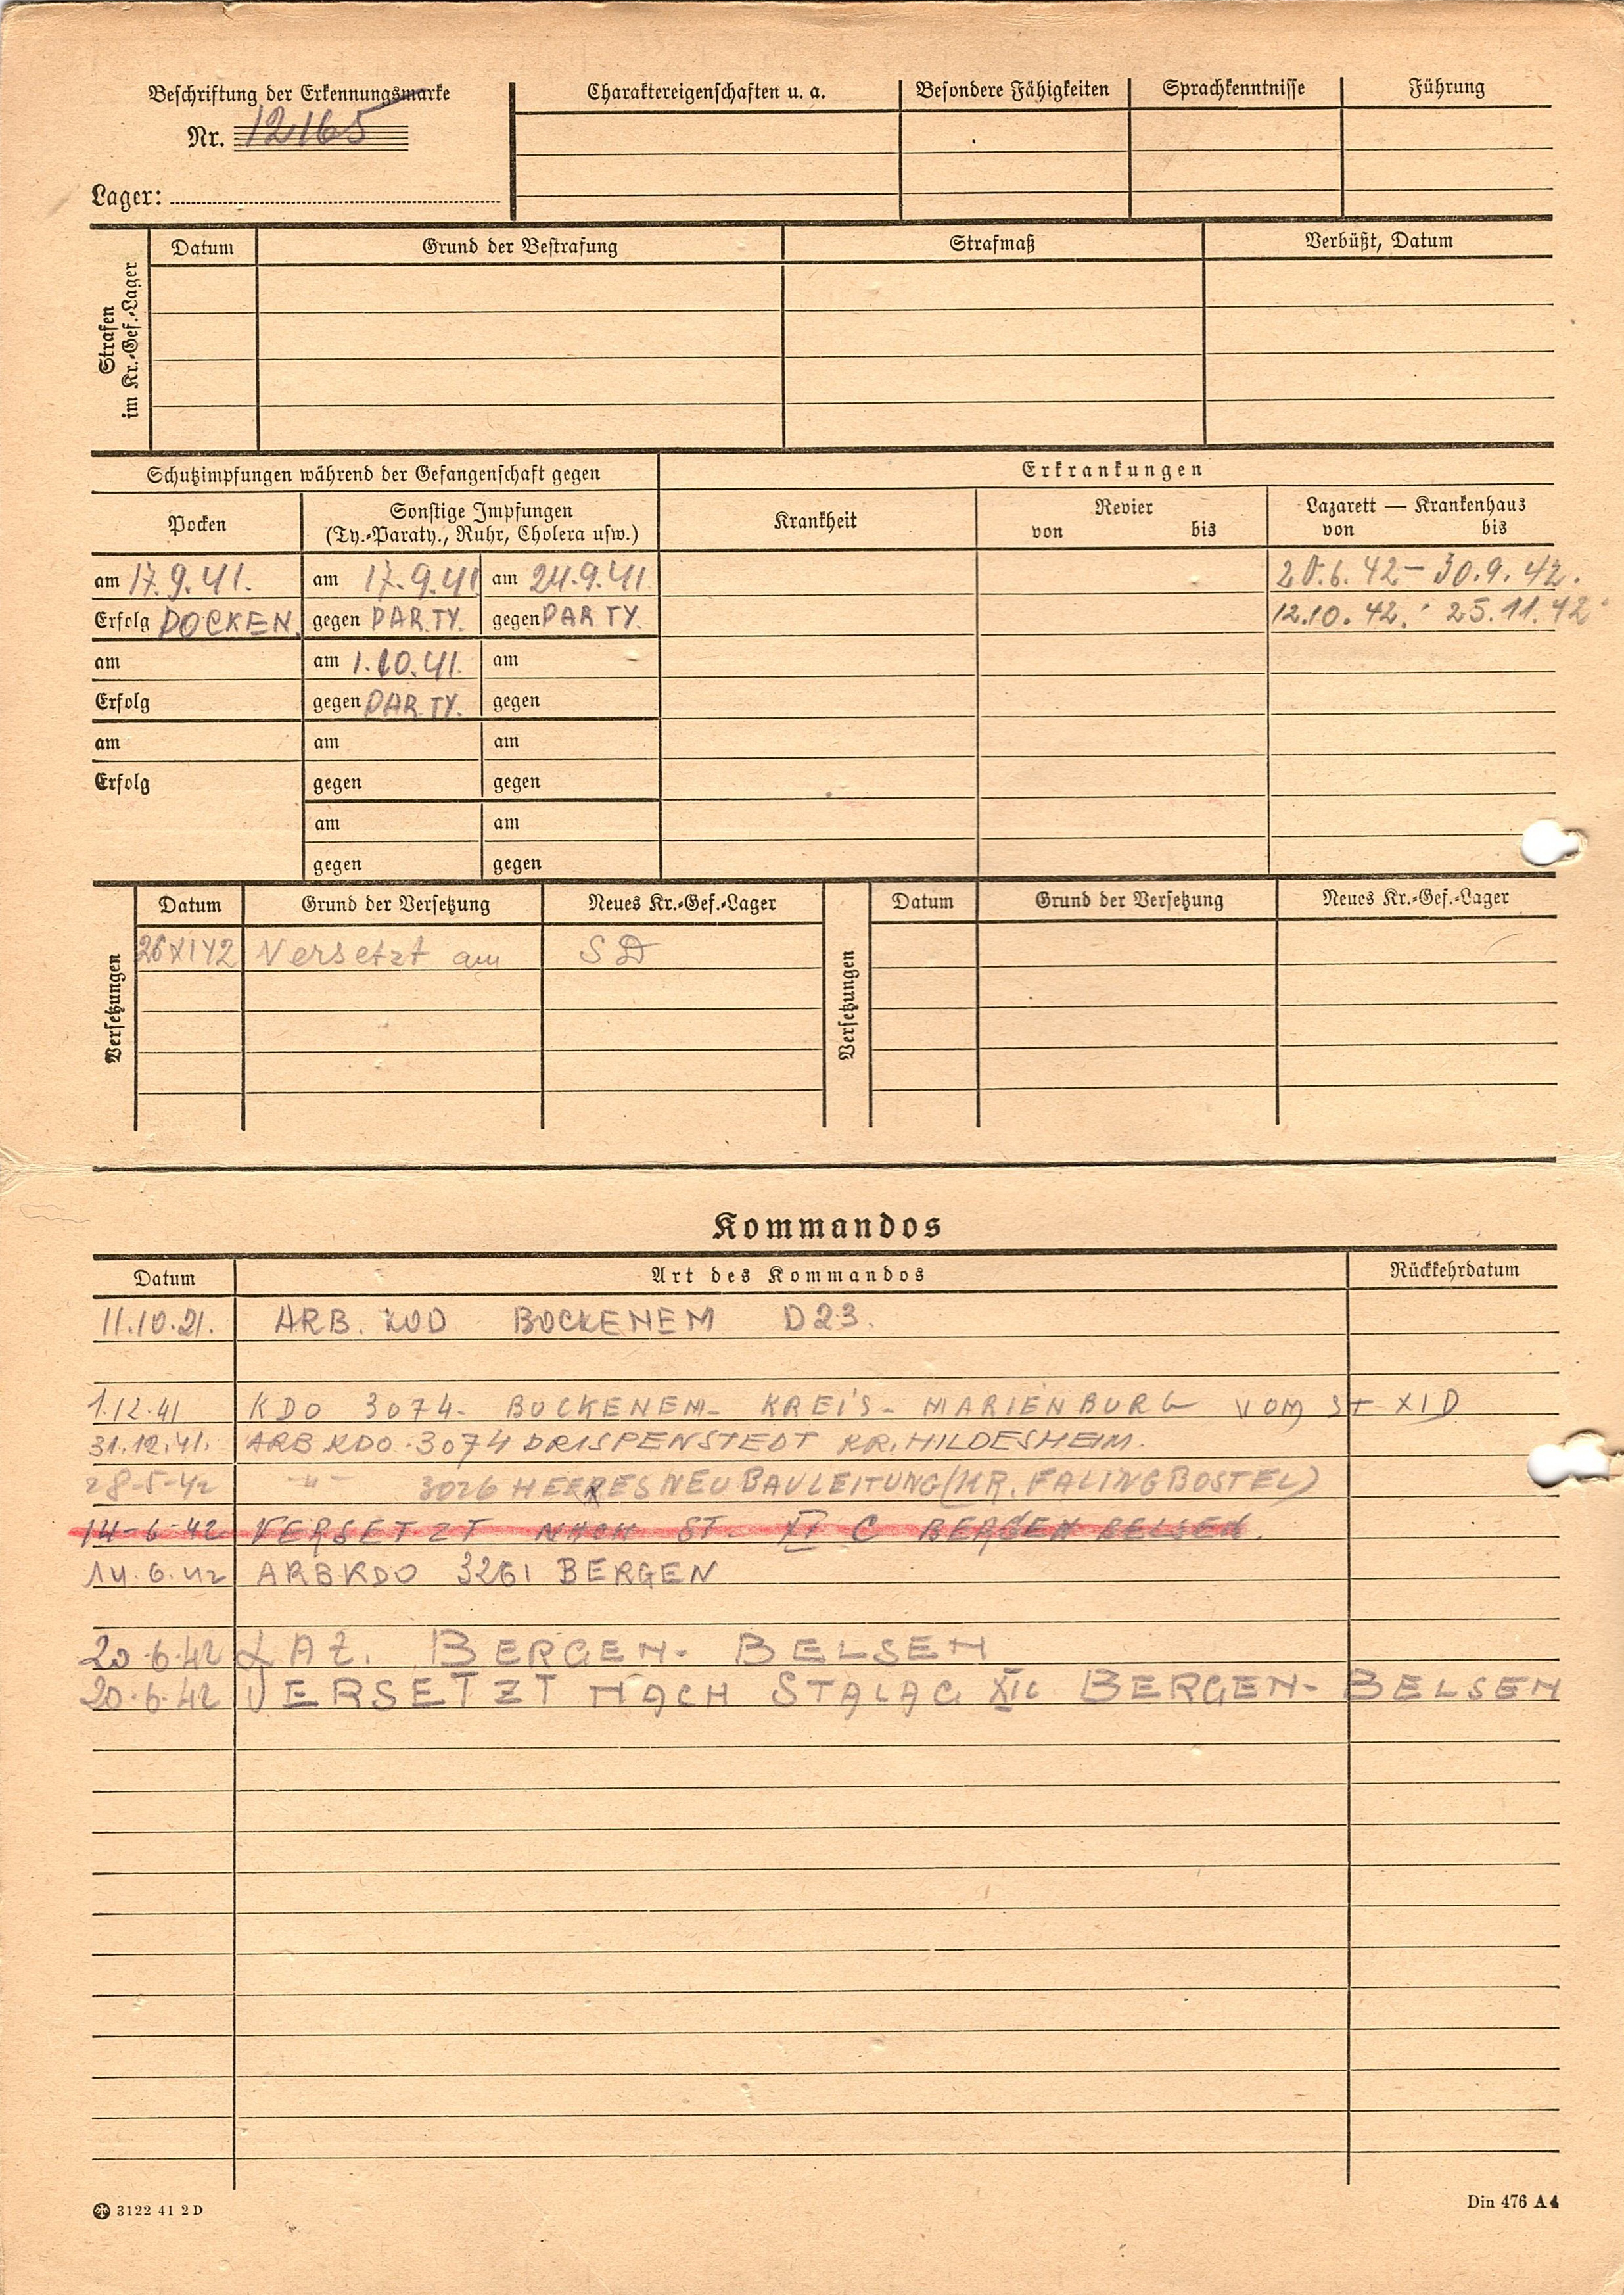 Beschriftung der Erkennungsmarke
Nr. 12165
Lager:
Charaktereigenschaften u. a.
Besondere Fähigkeiten
Sprachkenntnisse
Führung
Strafen
im Kr.-Gef.-Lager
Datum
Grund der Bestrafung
Strafmaß
Verbüßt, Datum
Schutzimpfungen während der Gefangenschaft gegen
Erkrankungen
Pocken
Sonstige Impfungen
(Ty.-Paraty., Ruhr, Cholera usw.)
Krankheit
Revier
von bis
Lazarett — Krankenhaus
von bis
am 17.9.41. am 17.9.41 am 24.9.41.
20.6.42 – 30.9.42.
Erfolg POCKEN. gegen PAR.TY. gegen PAR TY.
12.10.42. 25.11.42
am am 1.10.41. am
Erfolg gegen PAR.TY. gegen
am am am
Erfolg gegen gegen
am am
gegen gegen
Versetzungen
Datum Grund der Versetzung Neues Kr.-Gef.-Lager
26 XI 42 Versetzt am SD
Versetzungen
Datum Grund der Versetzung Neues Kr.-Gef.-Lager
Kommandos
Datum Art des Kommandos Rückkehrdatum
11.10.21. ARB. KOD BOCKENEM D23.
1.12.41 KDO 3074- BOCKENEM- KREIS- MARIENBURG VOM ST XI D
31.12.41. ARB KDO. 3074 DRISPENSTEDT KR. HILDESHEIM.
28-5-42 -"- 3026 HEERESNEUBAULEITUNG (KR. FALINGBOSTEL)
14-6-42 VERSETZT NACH ST. XI C BERGEN BELSEN.
14.6.42 ARBKDO 3261 BERGEN
20.6.42 LAZ. BERGEN- BELSEN
20.6.42 VERSETZT NACH STALAG XI C BERGEN- BELSEN
3122 41 2 D
Din 476 A4